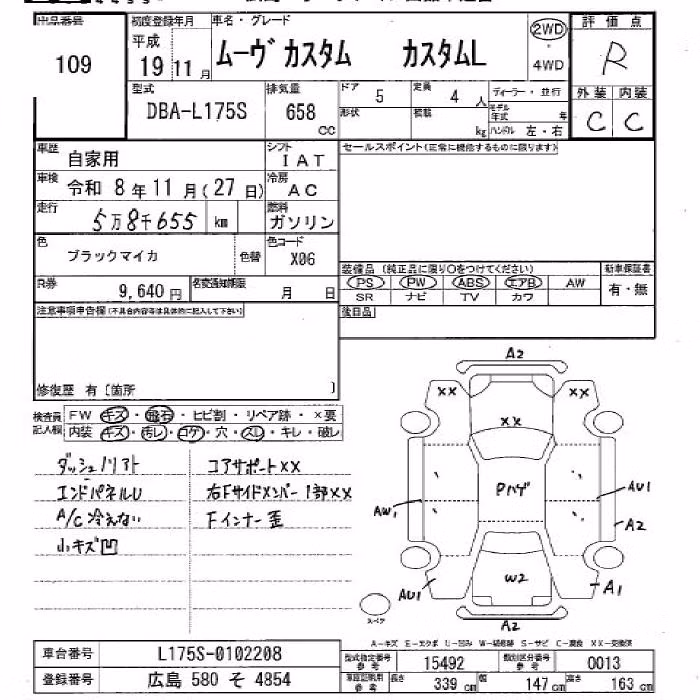 出品番号 初度登録年月 車名・グレード 2WD 評価点
109 平成 19 11月 ムーヴ カスタム カスタムL ・4WD R
型式 排気量 ドア 5 定員 4 人 ディーラー・並行 外装 内装
DBA-L175S 658 CC 形状 積載 kg モデル年式 年 ハンドル 左・右 C C
車歴 自家用 シフト IAT セールスポイント(正常に機能するものに限ります)
車検 令和 8年11月(27日) 冷房 AC
走行 5万8千655 km 燃料 ガソリン
色 ブラックマイカ 色替 色コード X06
装備品 (純正品に限り○をつけてください) 新車保証書
PS PW ABS エアB AW 有・無
SR ナビ TV カワ
R券 9,640円 名変通知期限 月 日
後日品
注意事項申告欄(不具合内容等は具体的に記入して下さい)
修復歴 有〔箇所 〕
検査員 FW キズ・飛石・ヒビ割・リペア跡・×要
記入欄 内装 キズ・汚レ・コゲ・穴・スレ・キレ・破レ
ダッシュノリアト コアサポートXX
エンドパネルU 右Fサイドメンバー1部XX
A/C冷えない Fインナー歪
小キズ凹
A2
XX XX
XX
Pハゲ
AW1 AU1
A2
W2
AU1 A1
スペア A2
A-キズ E-エクボ U-凹み W-補修跡 S-サビ C-腐食 XX-交換済
車台番号 L175S-0102208 型式指定番号 参考 15492 類別区分番号 参考 0013
登録番号 広島 580 そ 4854 長さ 339 cm 幅 147 cm 高さ 163 cm